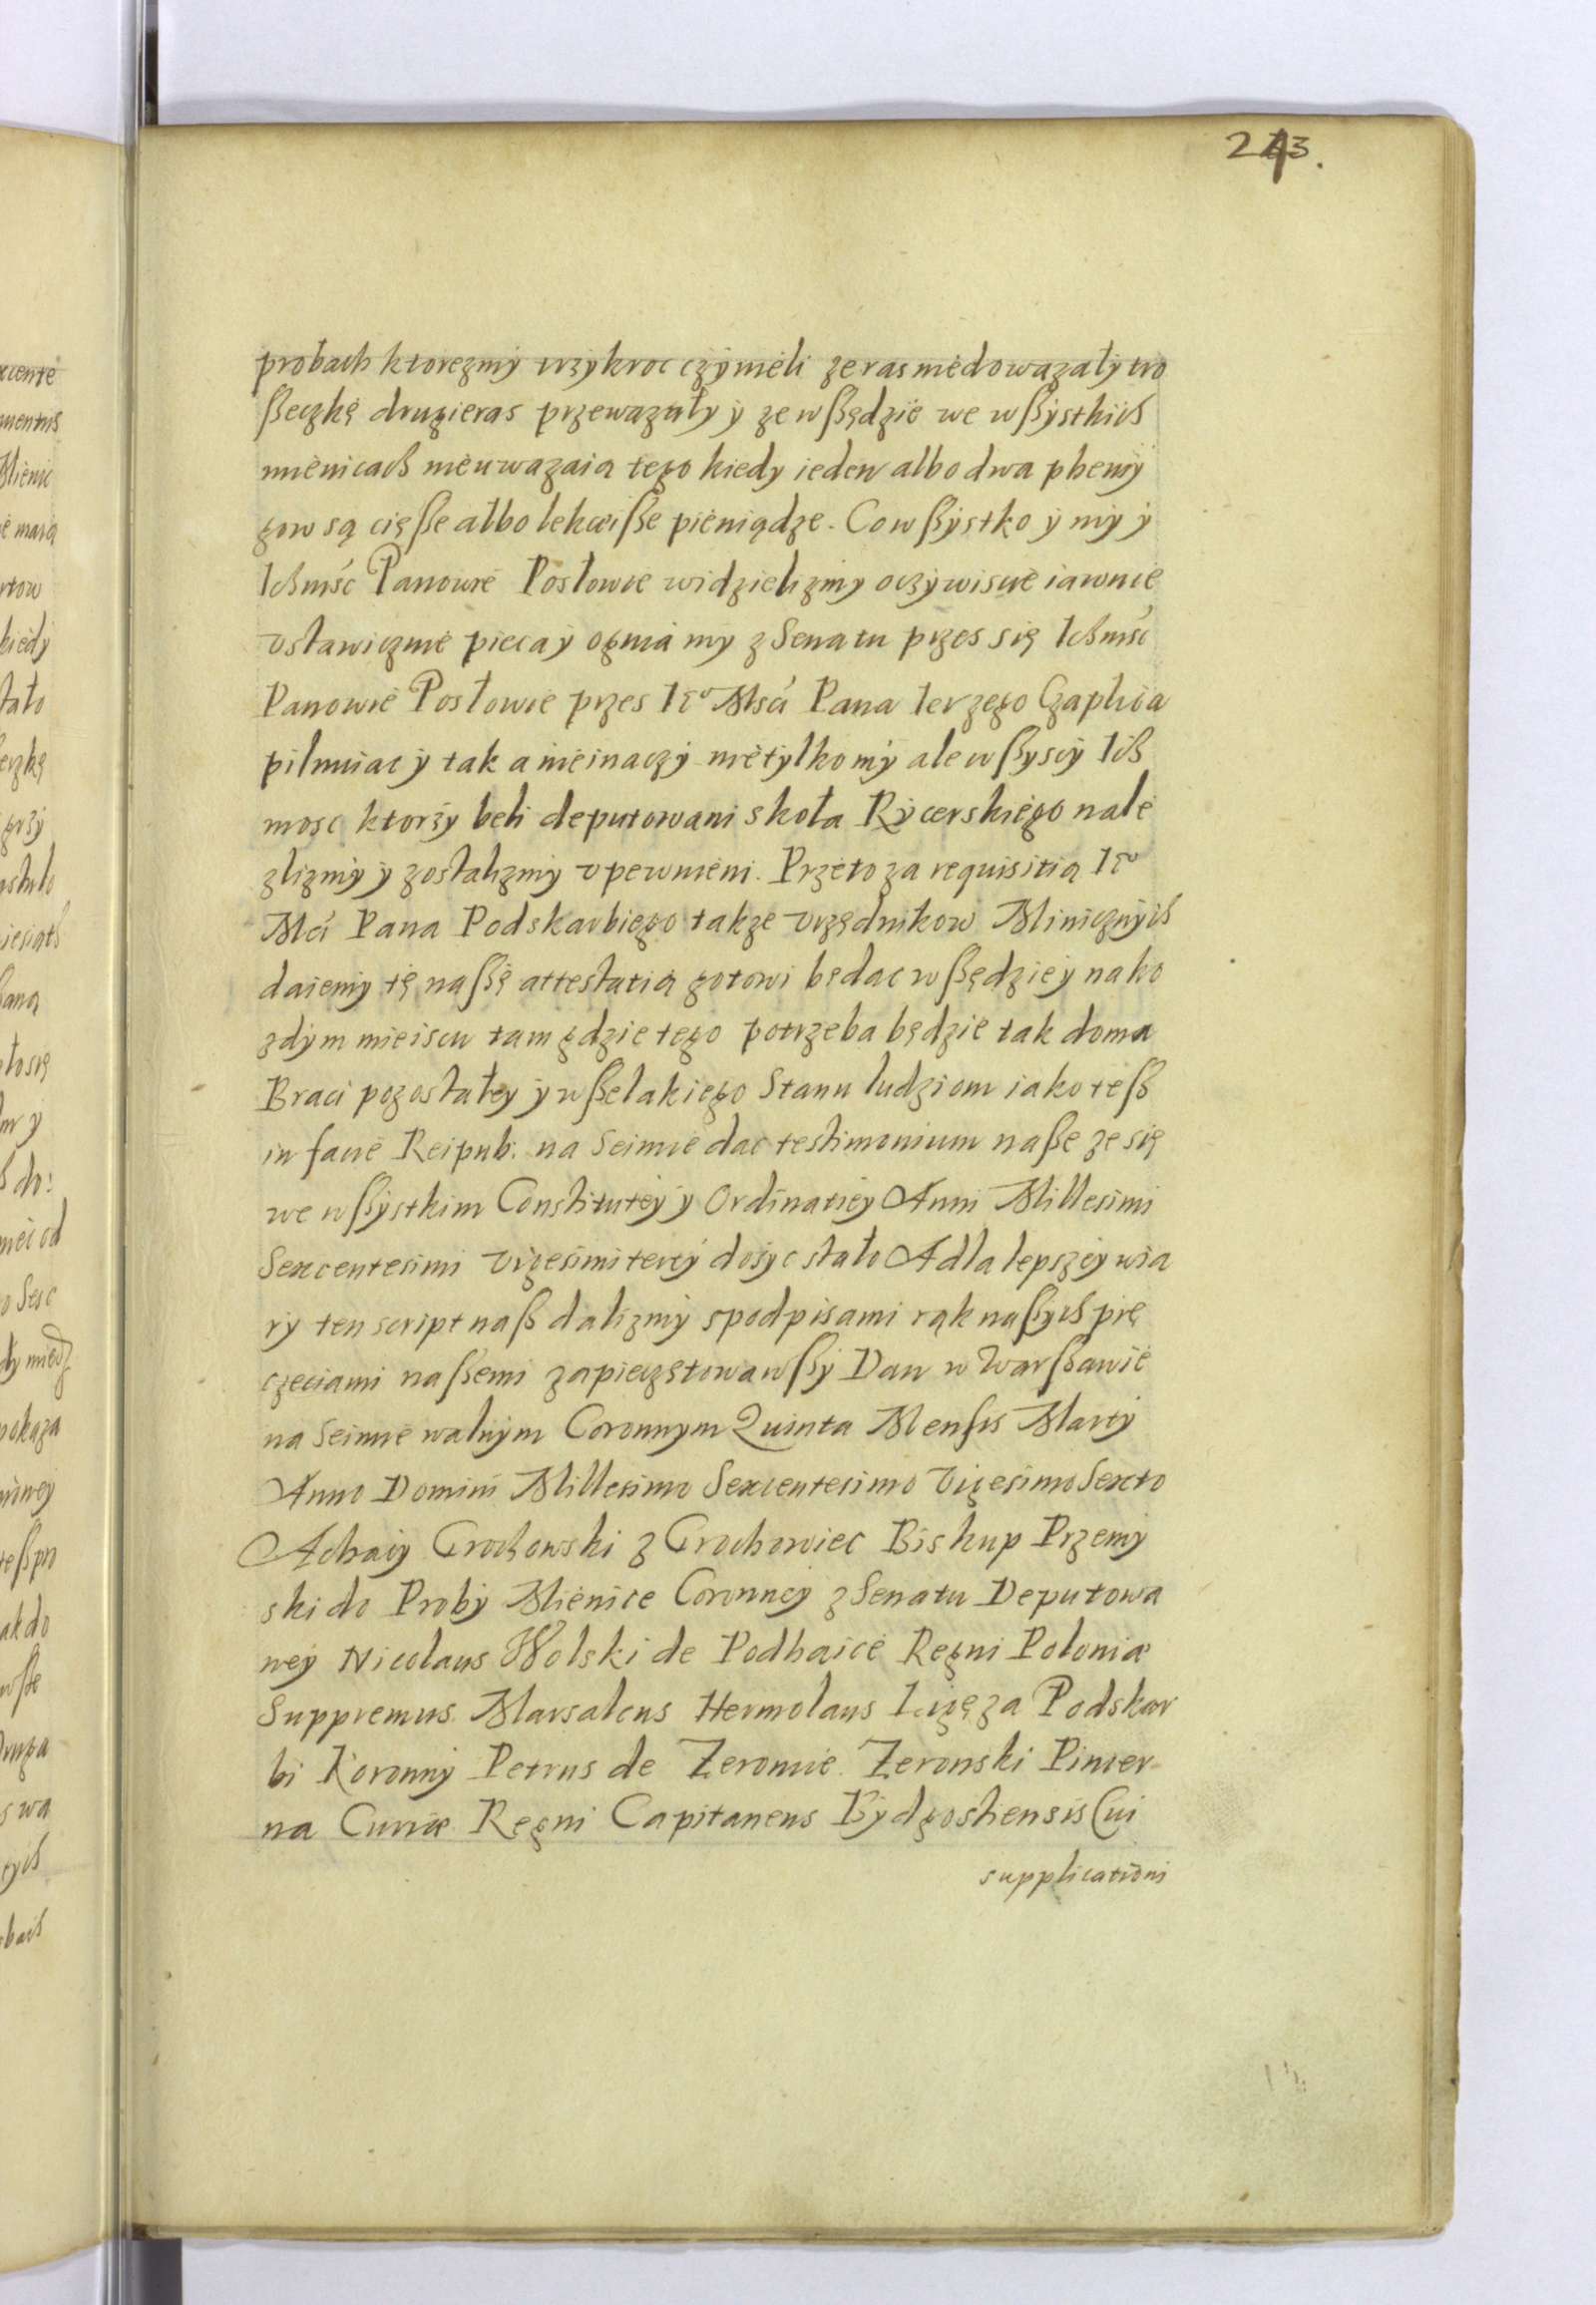 243.
probach ktorezmÿ trzÿkroc czÿnieli ze ras niedowazałÿ tro
ßeczkę drugieras przewazałÿ ÿ ze wßędzie we wßÿstkich
mienicach nieuwazaia tego kiedy ieden albo dwa phenÿ
gow są cięsße albo lekceiße pieniądze. Co wßÿstko ÿ mÿ ÿ
Ichmść Panowie Posłowie widzielizmy oczÿwiscie iawnie
vstawicznie pieca ÿ ognia mÿ z Senatu przes się Ichmśc
Panowie Posłowie przes Ieº Mści Pana Ierzego Czaplica
pilnuiac ÿ tak a nieinaczÿ nietÿlko mÿ ale wßyscÿ Ich
mosc ktorzÿ beli deputowani s koła Rÿcerskiego nale
zlizmÿ ÿ zostalizmÿ vpewnieni. Przeto za requisitią Ieº
Mći Pana Podskarbiego takze vrzędnikow Minicznÿch
daiemÿ tę naßę attestatią gotowi będac wßędzie ÿ na ko
zdÿm mieiscu tam gdzie tego potrzeba będzie tak doma
Braci pozostałeÿ ÿ wßelakiego Stanu ludziom iako teß
in facie Reipub: na Seimie dac testimonium naße ze się
we wßÿstkim Constituteÿ ÿ Ordinatieÿ Anni Millesimi
Sexcentesimi Vigesimi tercÿ dosÿc stało A dla lepszeÿ wia
rÿ ten script naß dalizmÿ s podpisami rąk naßÿch pię
czeciami naßemi zapieczętowawßÿ Dan w Warßawie
na Seimie walnÿm Coronnym Quinta Mensis Martÿ
Anno Domini Millesimo Sexcentesimo Vigesimo Sexto
Achacÿ Grochowski z Grochowiec Biskup Przemÿ
ski do Probÿ Mienice Coronneÿ z Senatu Deputowa
neÿ Nicolaus Wolski de Podhaice Regni Poloniæ
Suppremus Marsalcus Hermolaus Ligęza Podskar
bi Koronnÿ Petrus de Zeronie Zeronski Pincer-
na Curiæ Regni Capitaneus Bÿdgostiensis Cui
supplicationi